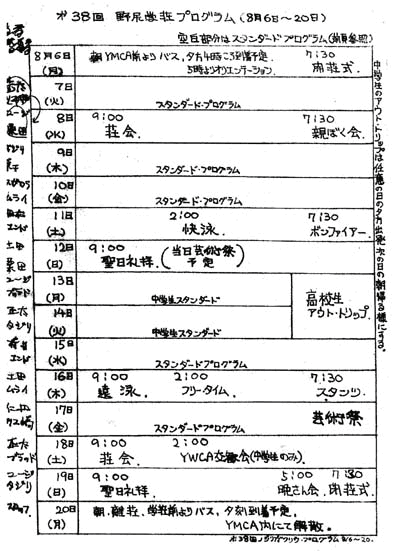 オ38回 野尻学荘プログラム(8月6日〜20日)
空白部分はスタンダード・プログラム
8月6日(月) 朝YMCA前よりバス、夕方4時ごろ到着予定 5時よりオリエンテーション 7:30 開荘式
7日(火) スタンダード・プログラム
8日(水) 9:00 荘会 7:30 親ぼく会
9日(木) スタンダード・プログラム
10日(金) スタンダード・プログラム
11日(土) 2:00 快泳 7:30 ボンファイアー
12日(日) 9:00 聖日礼拝 (当日芸術祭予定)
13日(月) 中学生スタンダード
高校生アウト・トリップ
14日(火) 中学生スタンダード
15日(水) スタンダード・プログラム
16日(木) 9:00 遠泳 2:00 フリータイム 7:30 スタンツ
17日(金) スタンダード・プログラム 芸術祭
18日(土) 9:00 荘会 2:00 YWCA交歓会(中学生のみ)
19日(日) 9:00 聖日礼拝 5:00 晩さん会 7:30 閉荘式
20日(月) 朝、離荘、学荘前よりバス、夕刻到着予定、YMCA内にて解散。
中学生のアウト・トリップは任意の日の夕方出発、次の日の朝帰る様にする。